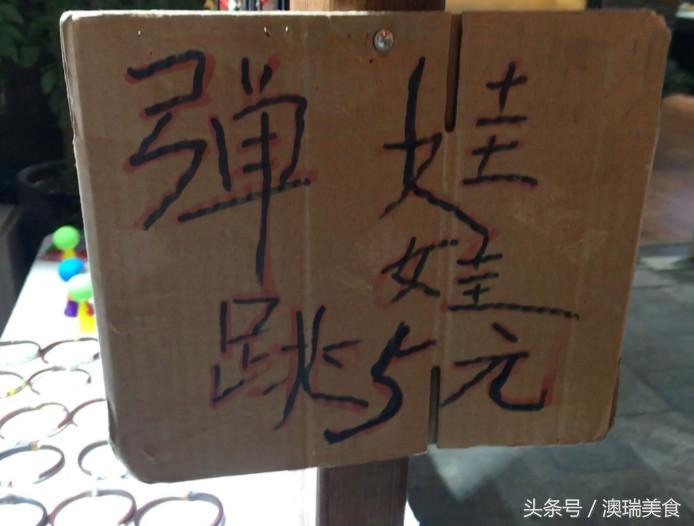 弹跳
娃娃
5元
头条号／澳瑞美食